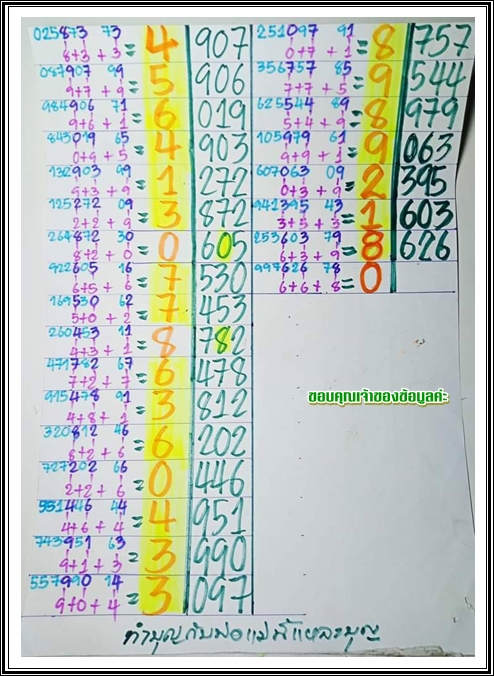 025873 73
8+3 + 3 = 4 907
087907 99
9+7 + 9 = 5 906
984906 71
9+6 + 1 = 6 019
843019 65
0+9 + 5 = 4 903
132903 99
9+3 + 9 = 1 272
125272 09
2+2 + 9 = 3 872
264872 30
8+2 + 0 = 0 605
922605 16
6+5 + 6 = 7 530
169530 62
5+0 + 2 = 7 453
260453 11
4+3 + 1 = 8 782
471782 67
7+2 + 7 = 6 478
915478 91
4+8 + 1 = 3 812
320812 46
8+2 + 6 = 6 202
727202 66
2+2 + 6 = 0 446
551446 44
4+6 + 4 = 4 951
743951 63
9+1 + 3 = 3 990
557990 14
9+0 + 4 = 3 097
251097 91
0+7 + 1 = 8 757
356757 85
7+7 + 5 = 9 544
625544 89
5+4 + 9 = 8 979
105979 61
9+9 + 1 = 9 063
607063 09
0+3 + 9 = 2 395
941395 43
3+5 + 3 = 1 603
253603 79
6+3 + 9 = 8 626
997626 78
6+6 + 8 = 0
ขอบคุณเจ้าของข้อมูลค่ะ
ทำบุญกับพ่อแม่นี้แหละบุญ